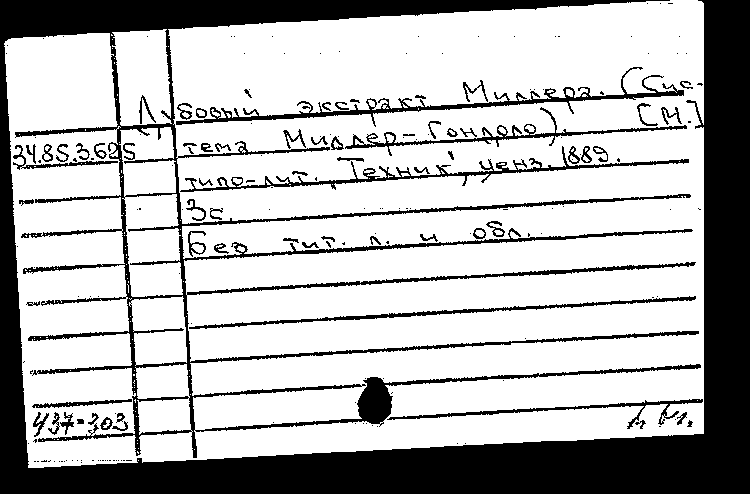 Дубовый экстракт Миллера. (Сис-
34.85.3.625 тема Миллер-Гондоло). [М.]
типо-лит. "Техник", ценз. 1889.
3 с.
Без тит. л. и обл.
437-303